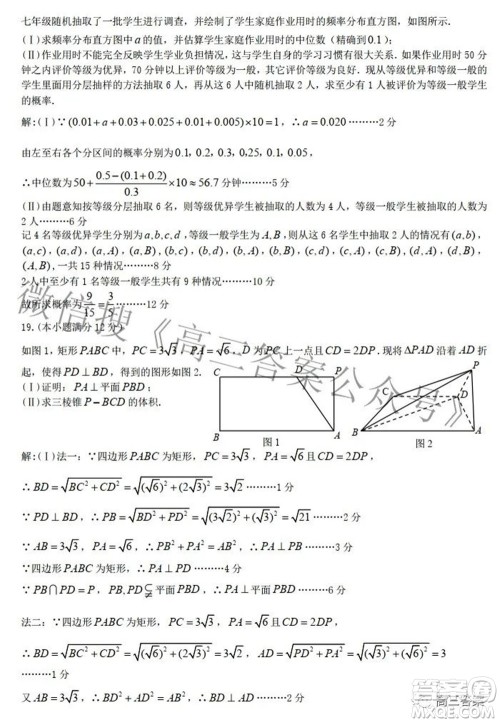 七年级随机抽取了一批学生进行调查，并绘制了学生家庭作业用时的频率分布直方图，如图所示.
(Ⅰ)求频率分布直方图中a的值，并估算学生家庭作业用时的中位数（精确到0.1）；
(Ⅱ)作业用时不能完全反映学生学业负担情况，这与学生自身的学习习惯有很大关系. 如果作业用时50分
钟之内评价等级为优异，70分钟以上评价等级为一般，其它评价等级为良好. 现从等级优异和等级一般的
学生里面用分层抽样的方法抽取6人，再从这6人中随机抽取2人，求至少有1人被评价等级为一般的学生
的概率.
解：(Ⅰ)∵(0.01+a+0.03+0.025+0.01+0.005)×10=1，∴a=0.020………2分
由左至右各个分区间的概率分别为0.1, 0.2, 0.3, 0.25, 0.1, 0.05，
∴中位数为50+(0.5-(0.1+0.2))/0.3×10≈56.7分钟……5分
(Ⅱ)由题意知按等级分层抽取6名，则等级优异被抽取的人数为4人，等级一般被抽取的人数为
2人……6分
记4名等级优异学生分别为a,b,c,d，等级一般学生为A,B，则从这6名学生中抽取2人有(a,b),
(a,c),(a,d),(a,A),(a,B),(b,c),(b,d),(b,A),(b,B),(c,d),(c,A),(c,B),(d,A),(d,B),
(A,B),一共15种情况……8分
2人中至少有1名等级一般学生共有9种情况……10分
故所求概率为9/15=3/5……12分
19.（本小题满分12分）
如图1，矩形PABC中，PC=3√3，PA=√6，D为PC上一点且CD=2DP. 现将△PAD沿着AD折
起，使得PD⊥BD，得到的图形如图2.
(Ⅰ)证明：PA⊥平面PBD；
(Ⅱ)求三棱锥P-BCD的体积.
C D P
B A
图1
P
C D
B A
图2
解：(Ⅰ)法一：∵四边形PABC为矩形，PC=3√3，PA=√6且CD=2DP，
∴BD=√(BC²+CD²)=√((√6)²+(2√3)²)=3√2……1分
∵PD⊥BD，∴PB=√(BD²+PD²)=√((3√2)²+(√3)²)=√21………2分
∵AB=3√3，PA=√6，∴PB²+PA²=AB²，∴PB⊥PA………3分
∵四边形PABC为矩形，∴PA⊥PD………4分
∵PB∩PD=P，PB,PD⊊平面PBD，∴PA⊥平面PBD………5分
法二：∵四边形PABC为矩形，PC=3√3，PA=√6且CD=2DP，
∴BD=√(BC²+CD²)=√((√6)²+(2√3)²)=3√2，AD=√(PA²+PD²)=√((√6)²+(√3)²)=3
………1分
又AB=3√3，∴BD²+AD²=AB²，∴BD⊥AD……2分
微信搜《高三答案公众号》
高三答案